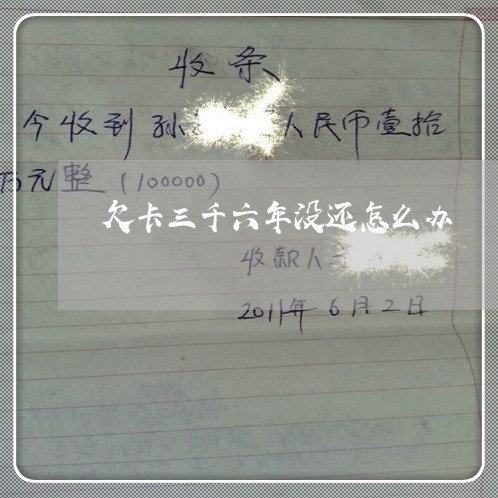 收条
今收到孙 人民币壹拾
万元整(100000)
欠卡三千六年没还怎么办
收款人
2011年6月2日